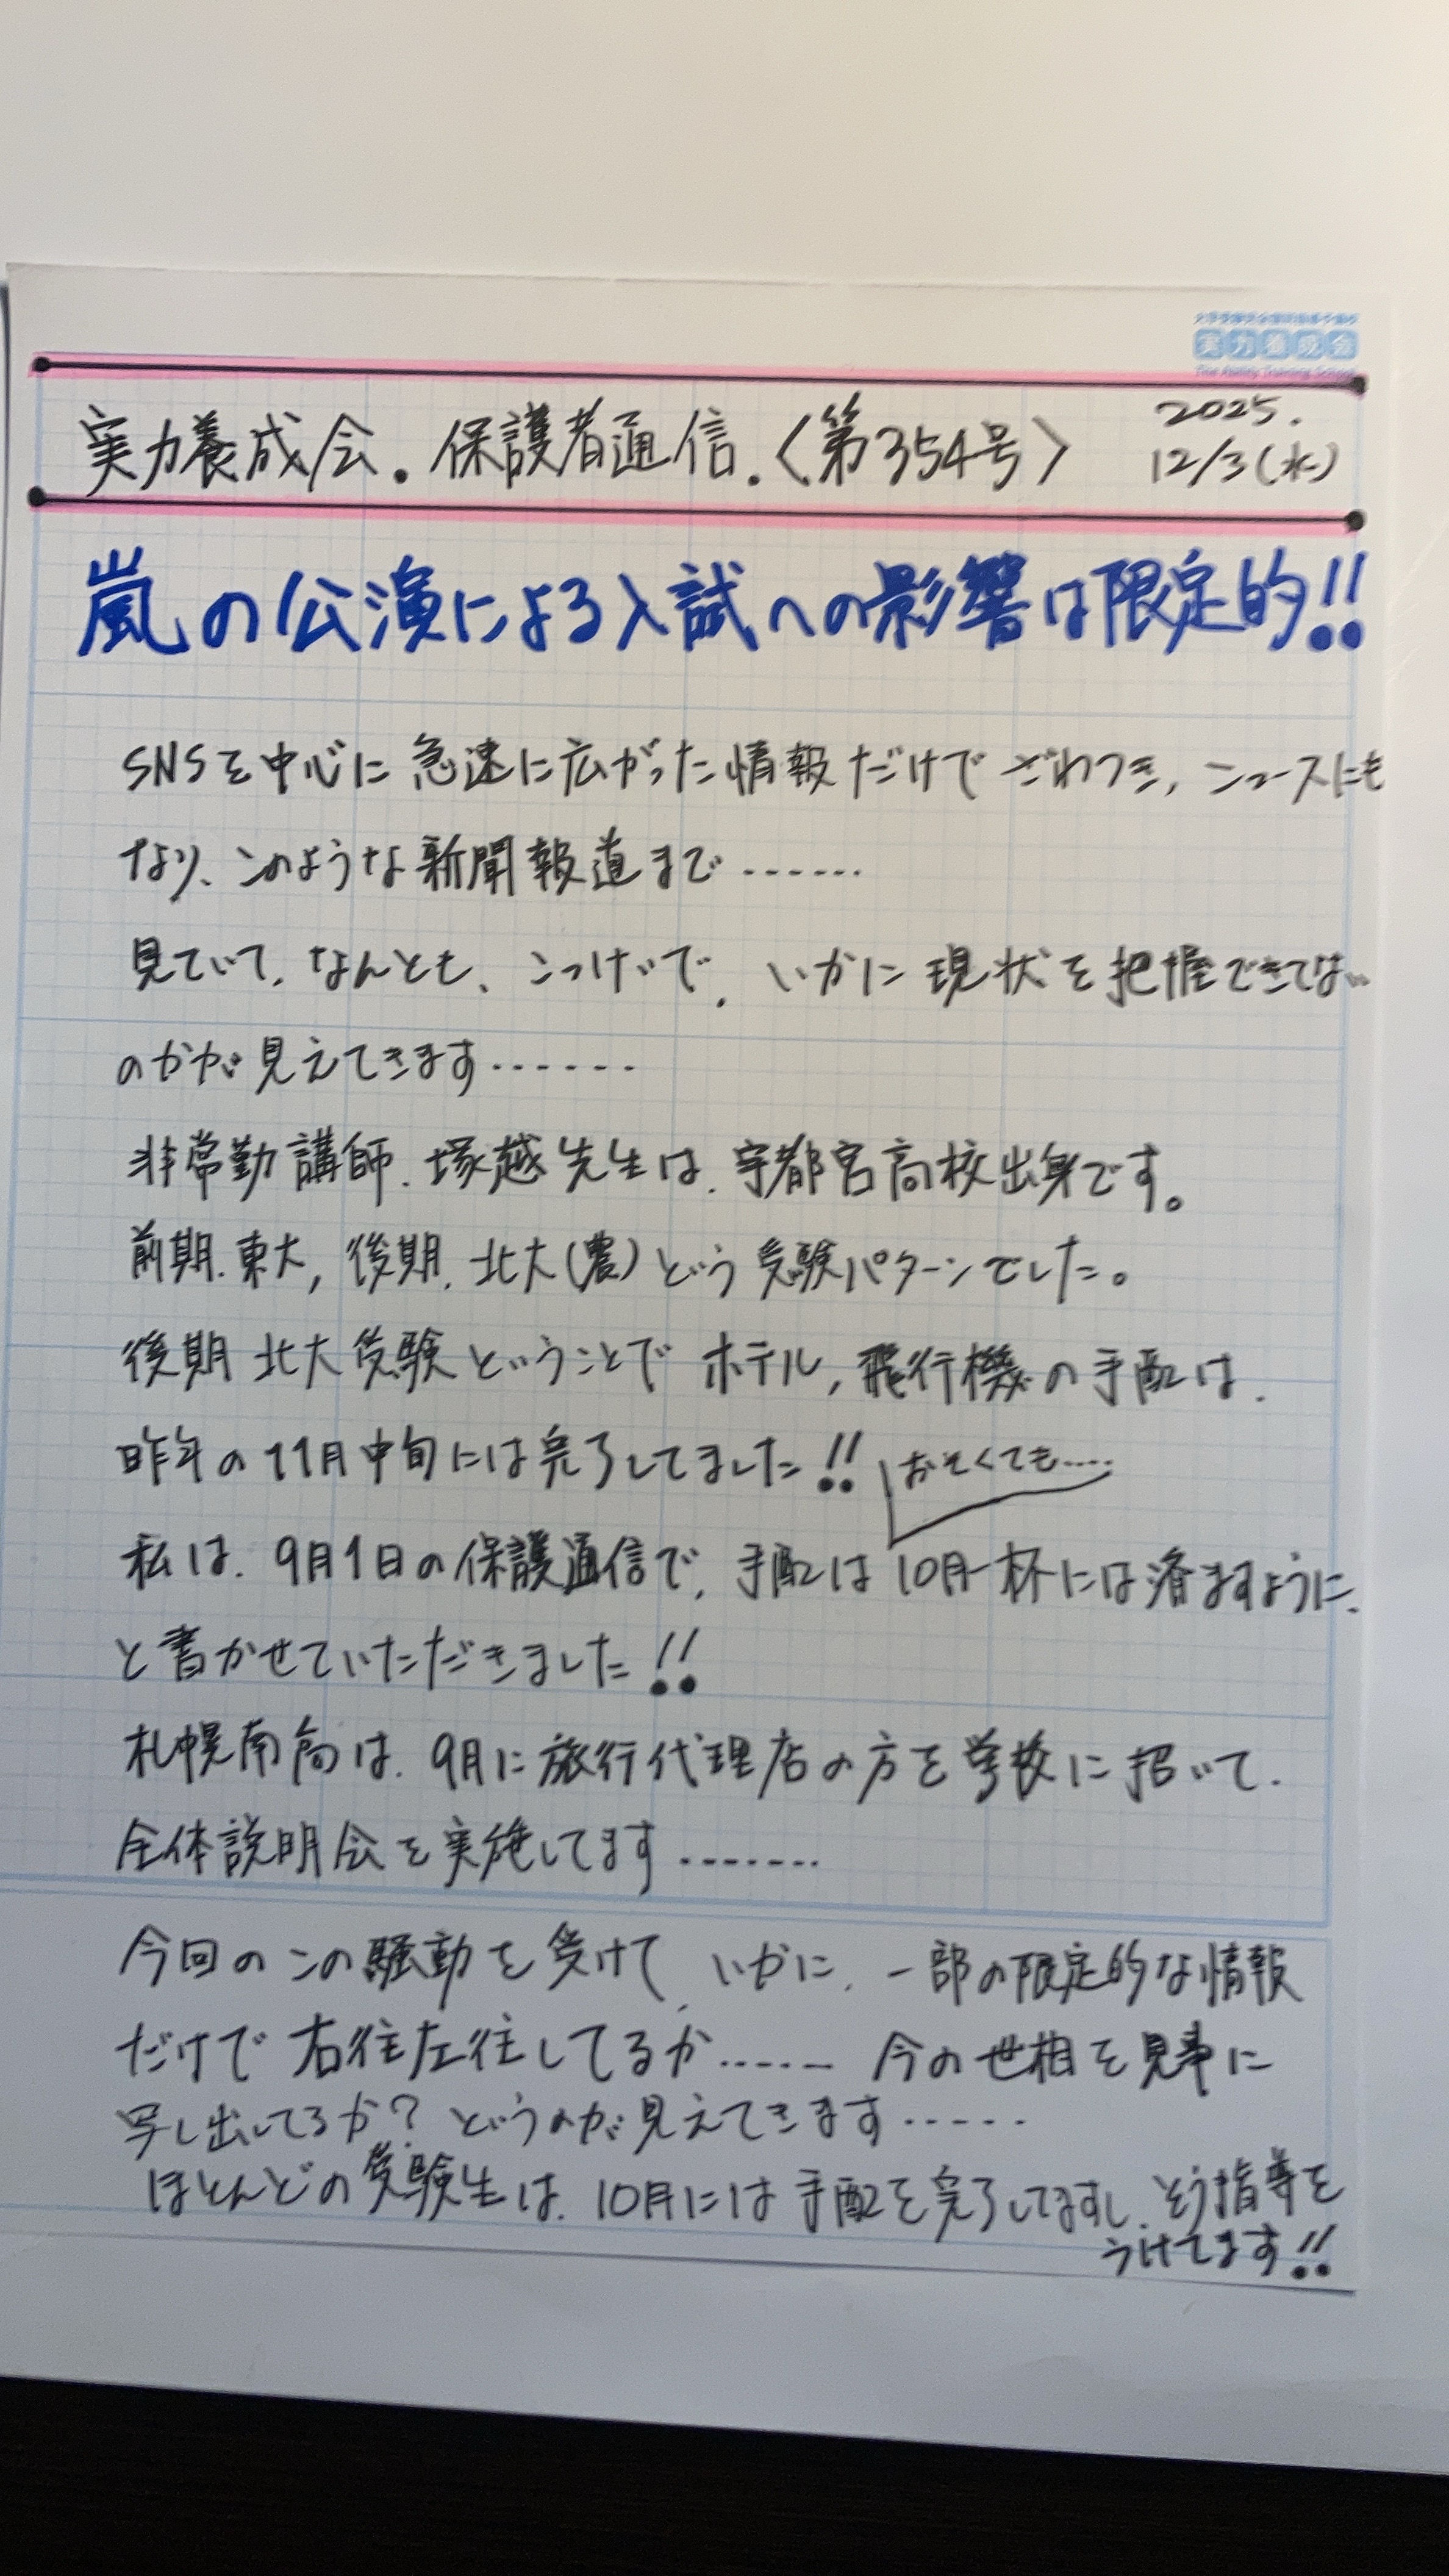 実力養成会
The Ability Training School
実力養成会.保護者通信.〈第354号〉
2025.
12/3(水)
嵐の公演による入試への影響は限定的!!
SNSを中心に急速に広がった情報だけでざわつき,ニュースにも
なり、このような新聞報道まで……
見ていて,なんとも、こっけいで,いかに現状を把握できてない
のかが見えてきます……
非常勤講師.塚越先生は.宇都宮高校出身です。
前期.東大,後期.北大(農)という受験パターンでした。
後期北大受験ということでホテル,飛行機の手配は.
昨年の11月中旬には完了してました!!
おそくても….
私は.9月1日の保護通信で,手配は10月一杯には済ますように.
と書かせていただきました!!
札幌南高は.9月に旅行代理店の方を学校に招いて.
全体説明会を実施してます…….
今回のこの騒動を受けて,いかに.一部の限定的な情報
だけで右往左往してるか……今の世相を見事に
写し出してるか?というのが見えてきます……
ほとんどの受験生は.10月には手配を完了してますし.そう指導を
うけてます!!